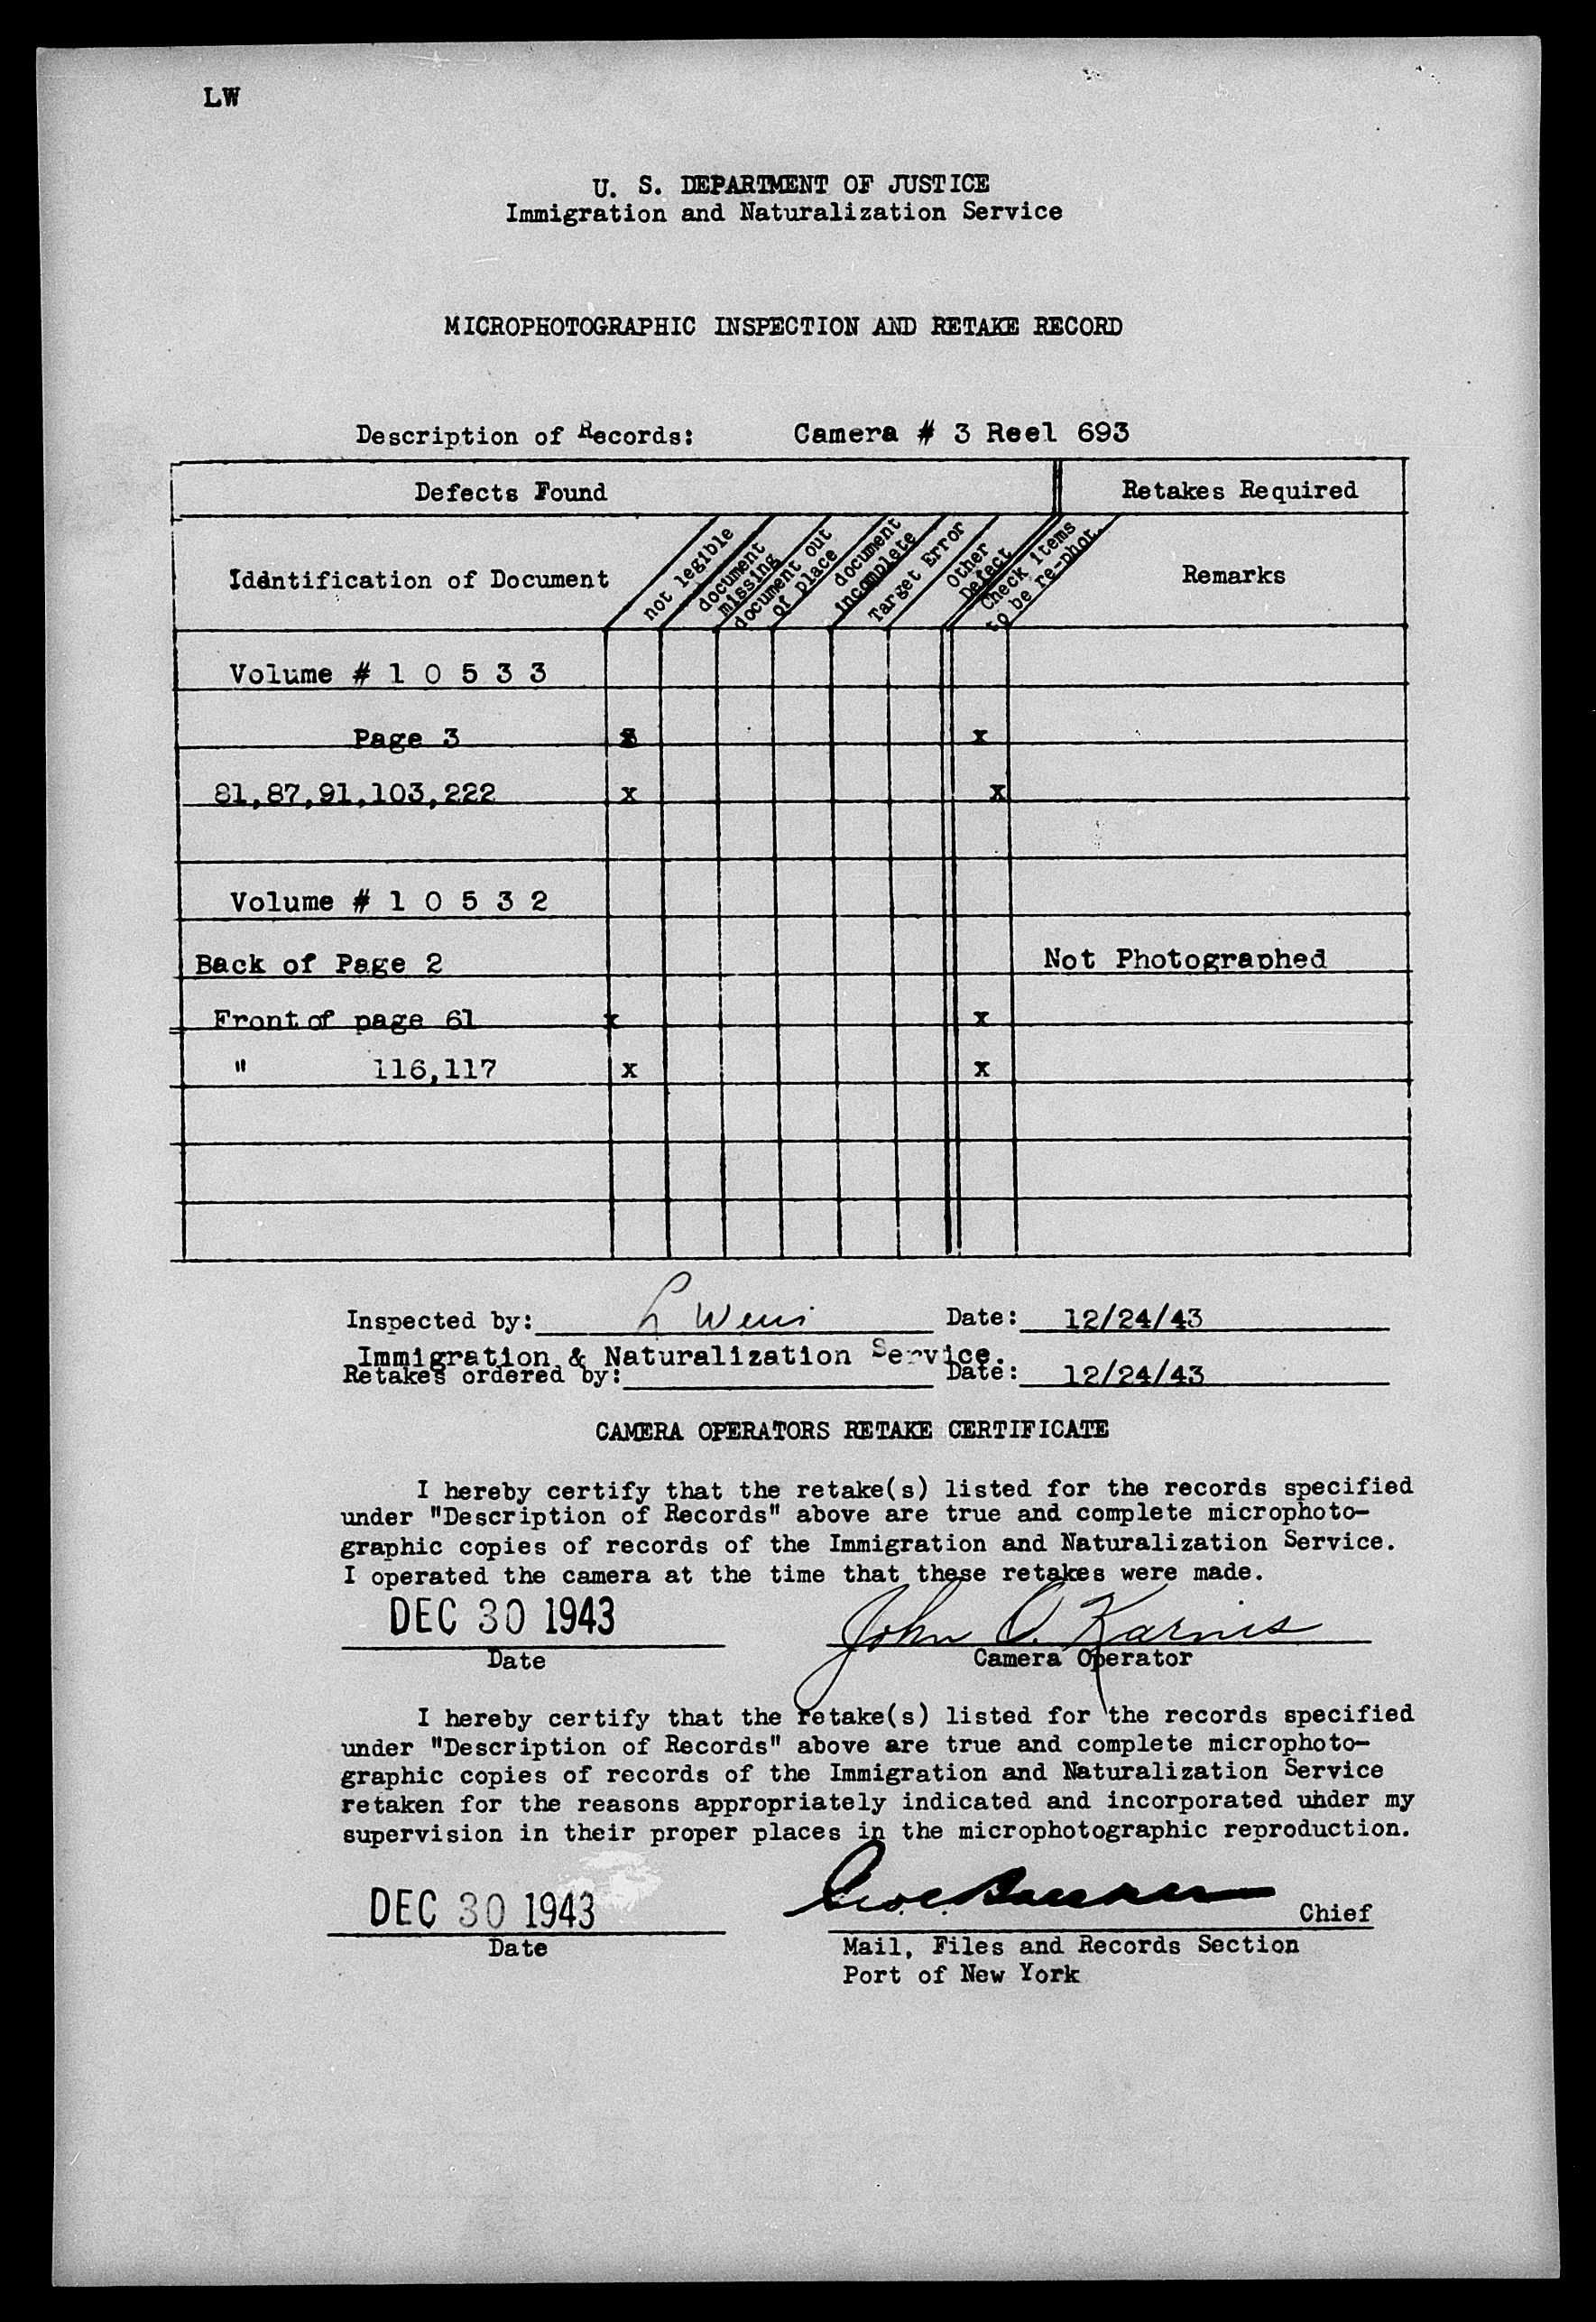 LW
U. S. DEPARTMENT OF JUSTICE
Immigration and Naturalization Service
MICROPHOTOGRAPHIC INSPECTION AND RETAKE RECORD
Description of Records: Camera # 3 Reel 693
Defects Found Retakes Required
Identification of Document
not legible
document missing
document out of place
document incomplete
Target Error
Other Defect
Check items to be re-phot.
Remarks
Volume # 1 0 5 3 3
Page 3 x x
81,87,91,103,222 x x
Volume # 1 0 5 3 2
Back of Page 2 Not Photographed
Front of page 61 x x
" 116,117 x x
Inspected by: L Date: 12/24/43
Immigration & Naturalization Service.
Retakes ordered by: Date: 12/24/43
CAMERA OPERATORS RETAKE CERTIFICATE
I hereby certify that the retake(s) listed for the records specified
under "Description of Records" above are true and complete microphoto-
graphic copies of records of the Immigration and Naturalization Service.
I operated the camera at the time that these retakes were made.
DEC 30 1943 John O. Karnes
Date Camera Operator
I hereby certify that the retake(s) listed for the records specified
under "Description of Records" above are true and complete microphoto-
graphic copies of records of the Immigration and Naturalization Service
retaken for the reasons appropriately indicated and incorporated uhder my
supervision in their proper places in the microphotographic reproduction.
DEC 30 1943 Chief
Date Mail, Files and Records Section
Port of New York